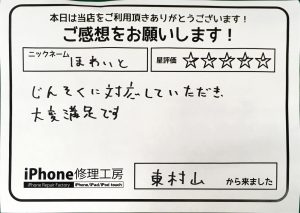 本日は当店をご利用頂きありがとうございます！
ご感想をお願いします！
ニックネーム ほわいと
星評価 ☆☆☆☆☆
じんそくに対応していただき、
大変満足です
iPhone修理工房
iPhone Repair Factory iPhone/iPad/iPod touch
東村山 から来ました